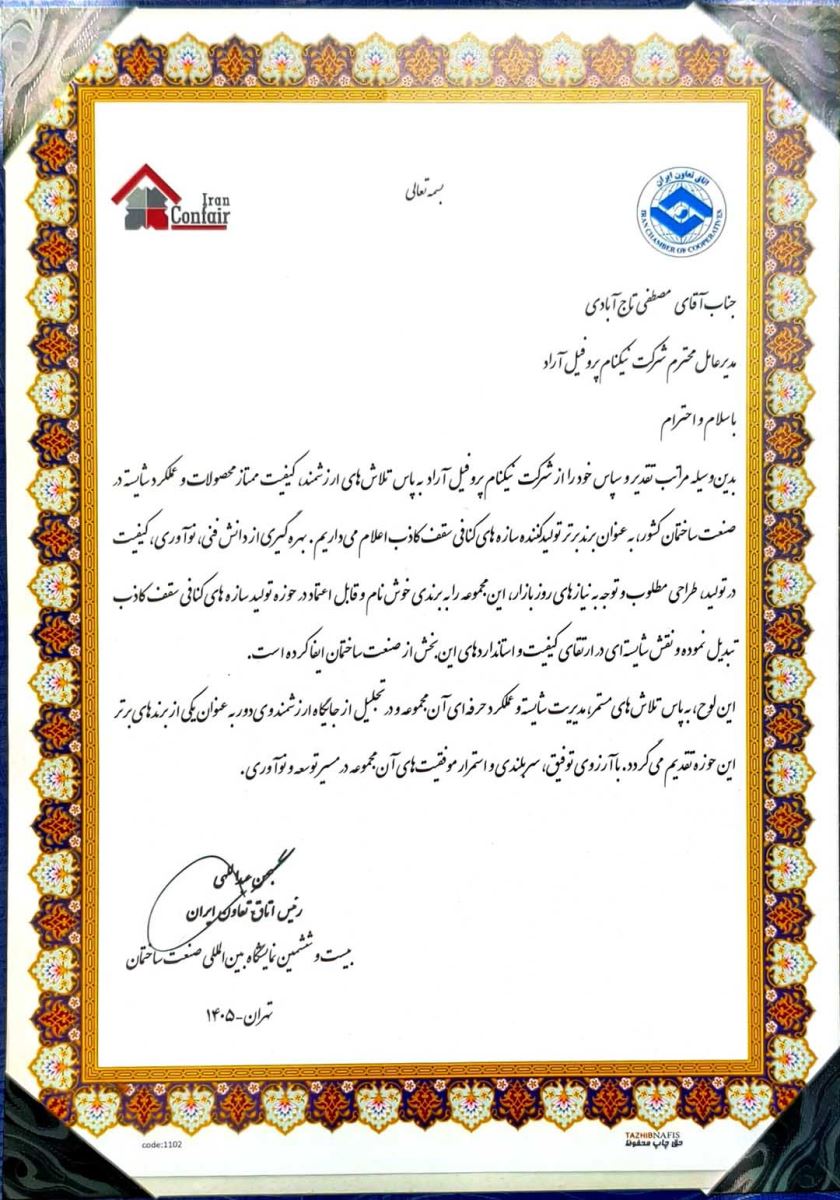 بسمه تعالی
Iran
Confair
اتاق تعاون ایران
IRAN CHAMBER OF COOPERATIVES
جناب آقای مصطفی تاج آبادی
مدیرعامل محترم شرکت نیکنام پروفیل آراد
باسلام و احترام
بدین وسیله مراتب تقدیر و سپاس خود را از شرکت نیکنام پروفیل آراد به پاس تلاش های ارزشمند، کیفیت ممتاز محصولات و عملکرد شایسته در
صنعت ساختمان کشور، به عنوان برند برتر تولیدکننده سازه های کنافی سقف کاذب اعلام می داریم. بهره گیری از دانش فنی، نوآوری، کیفیت
در تولید، طراحی مطلوب و توجه به نیازهای روز بازار، این مجموعه را به برندی خوش نام و قابل اعتماد در حوزه تولید سازه های کنافی سقف کاذب
تبدیل نموده و نقش شایسته ای در ارتقای کیفیت و استانداردهای این بخش از صنعت ساختمان ایفا کرده است.
این لوح، به پاس تلاش های مستمر، مدیریت شایسته و عملکرد حرفه ای آن مجموعه و در تجلیل از جایگاه ارزشمندی دور به عنوان یکی از برندهای برتر
این حوزه تقدیم می گردد. با آرزوی توفیق، سربلندی و استمرار موفقیت های آن مجموعه در مسیر توسعه و نوآوری.
بهمن عبداللهی
رئیس اتاق تعاون ایران
بیست و ششمین نمایشگاه بین المللی صنعت ساختمان
تهران-۱۴۰۵
code:1102
TAZHIBNAFIS
حق چاپ محفوظ